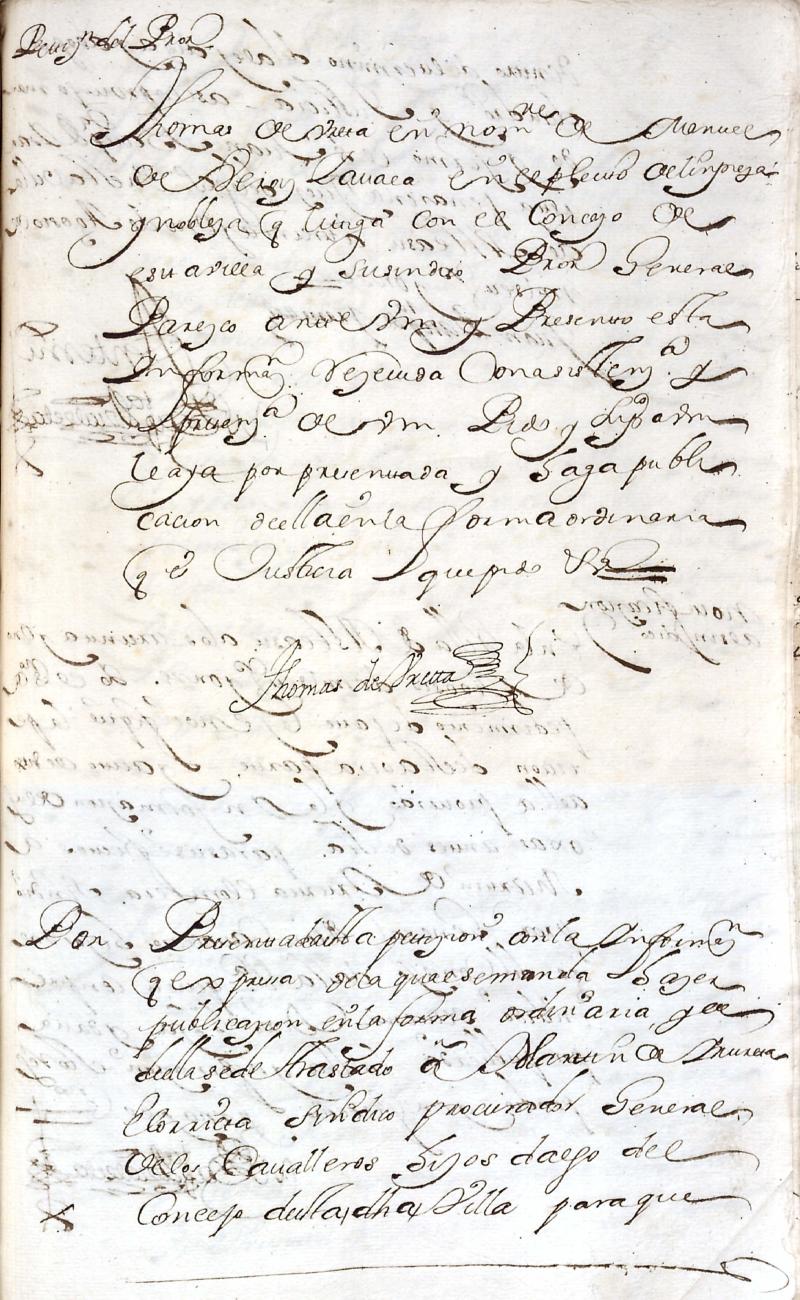 Petizn. del Pror.
Thomas de Vreta en nomre. de Manuel
de Perez Lavaca en el pleito de linpieza
y nobleza q litiga con el Concejo de
esta villa y su sindico Pror General
Parezco ante Vm y Presento esta
Informazn. Ejecutada Con asistenza. y
Prezenza. de Vm. Pido y supco a vm
le aya por presentada y haga publi
cacion de ella en la forma ordinaria
q es Justicia que pido &a
Thomas de Vreta
Por Presentada esta petizion con la Informazn
q expresa de la qual se manda hazer
publicazion en la forma ordinaria y de
ella se de traslado a Martin de Vrueta
Elorrieta sindico procurador General
de los Cavalleros hijos dalgo del
Concejo de esta dha Villa para que